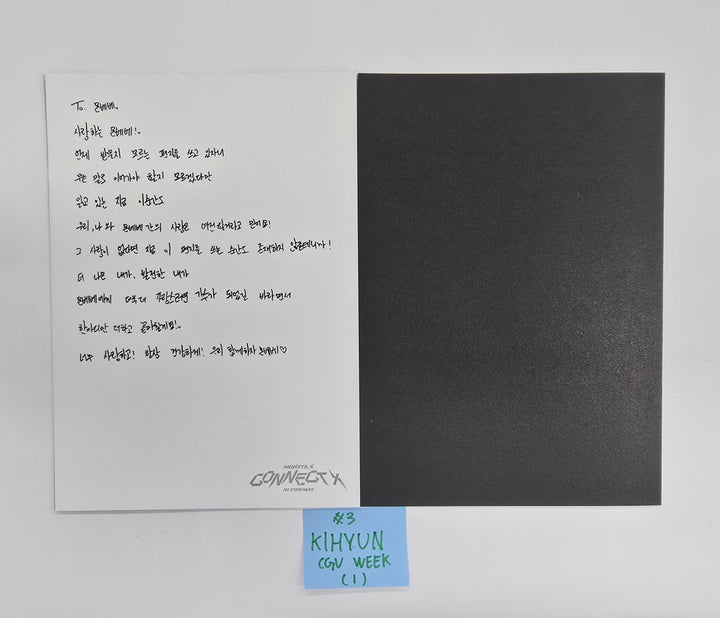 To. 몬베베.
사랑하는 몬베베!
언제 받을지 모르는 편지를 쓰고 있자니
무슨 말로 이어가야 할지 모르겠다만
읽고 있는 지금 이순간도
우리, 나와 몬베베 간의 사랑은 여전할거라고 믿어요!
그 사랑이 없다면 지금 이 편지를 쓰는 순간도 존재하지 않을테니까!
더 나은 내가, 발전한 내가
몬베베에게 더욱더 자랑스러운 가수가 되었길 바라면서
한마디만 더하고 끝마칠게요!
너무 사랑하고! 항상 건강하게! 우리 함께하자 몬베베♡
MONSTA X
CONNECT X
IN CINEMAS
#3
KIHYUN
CGV WEEK
(1)